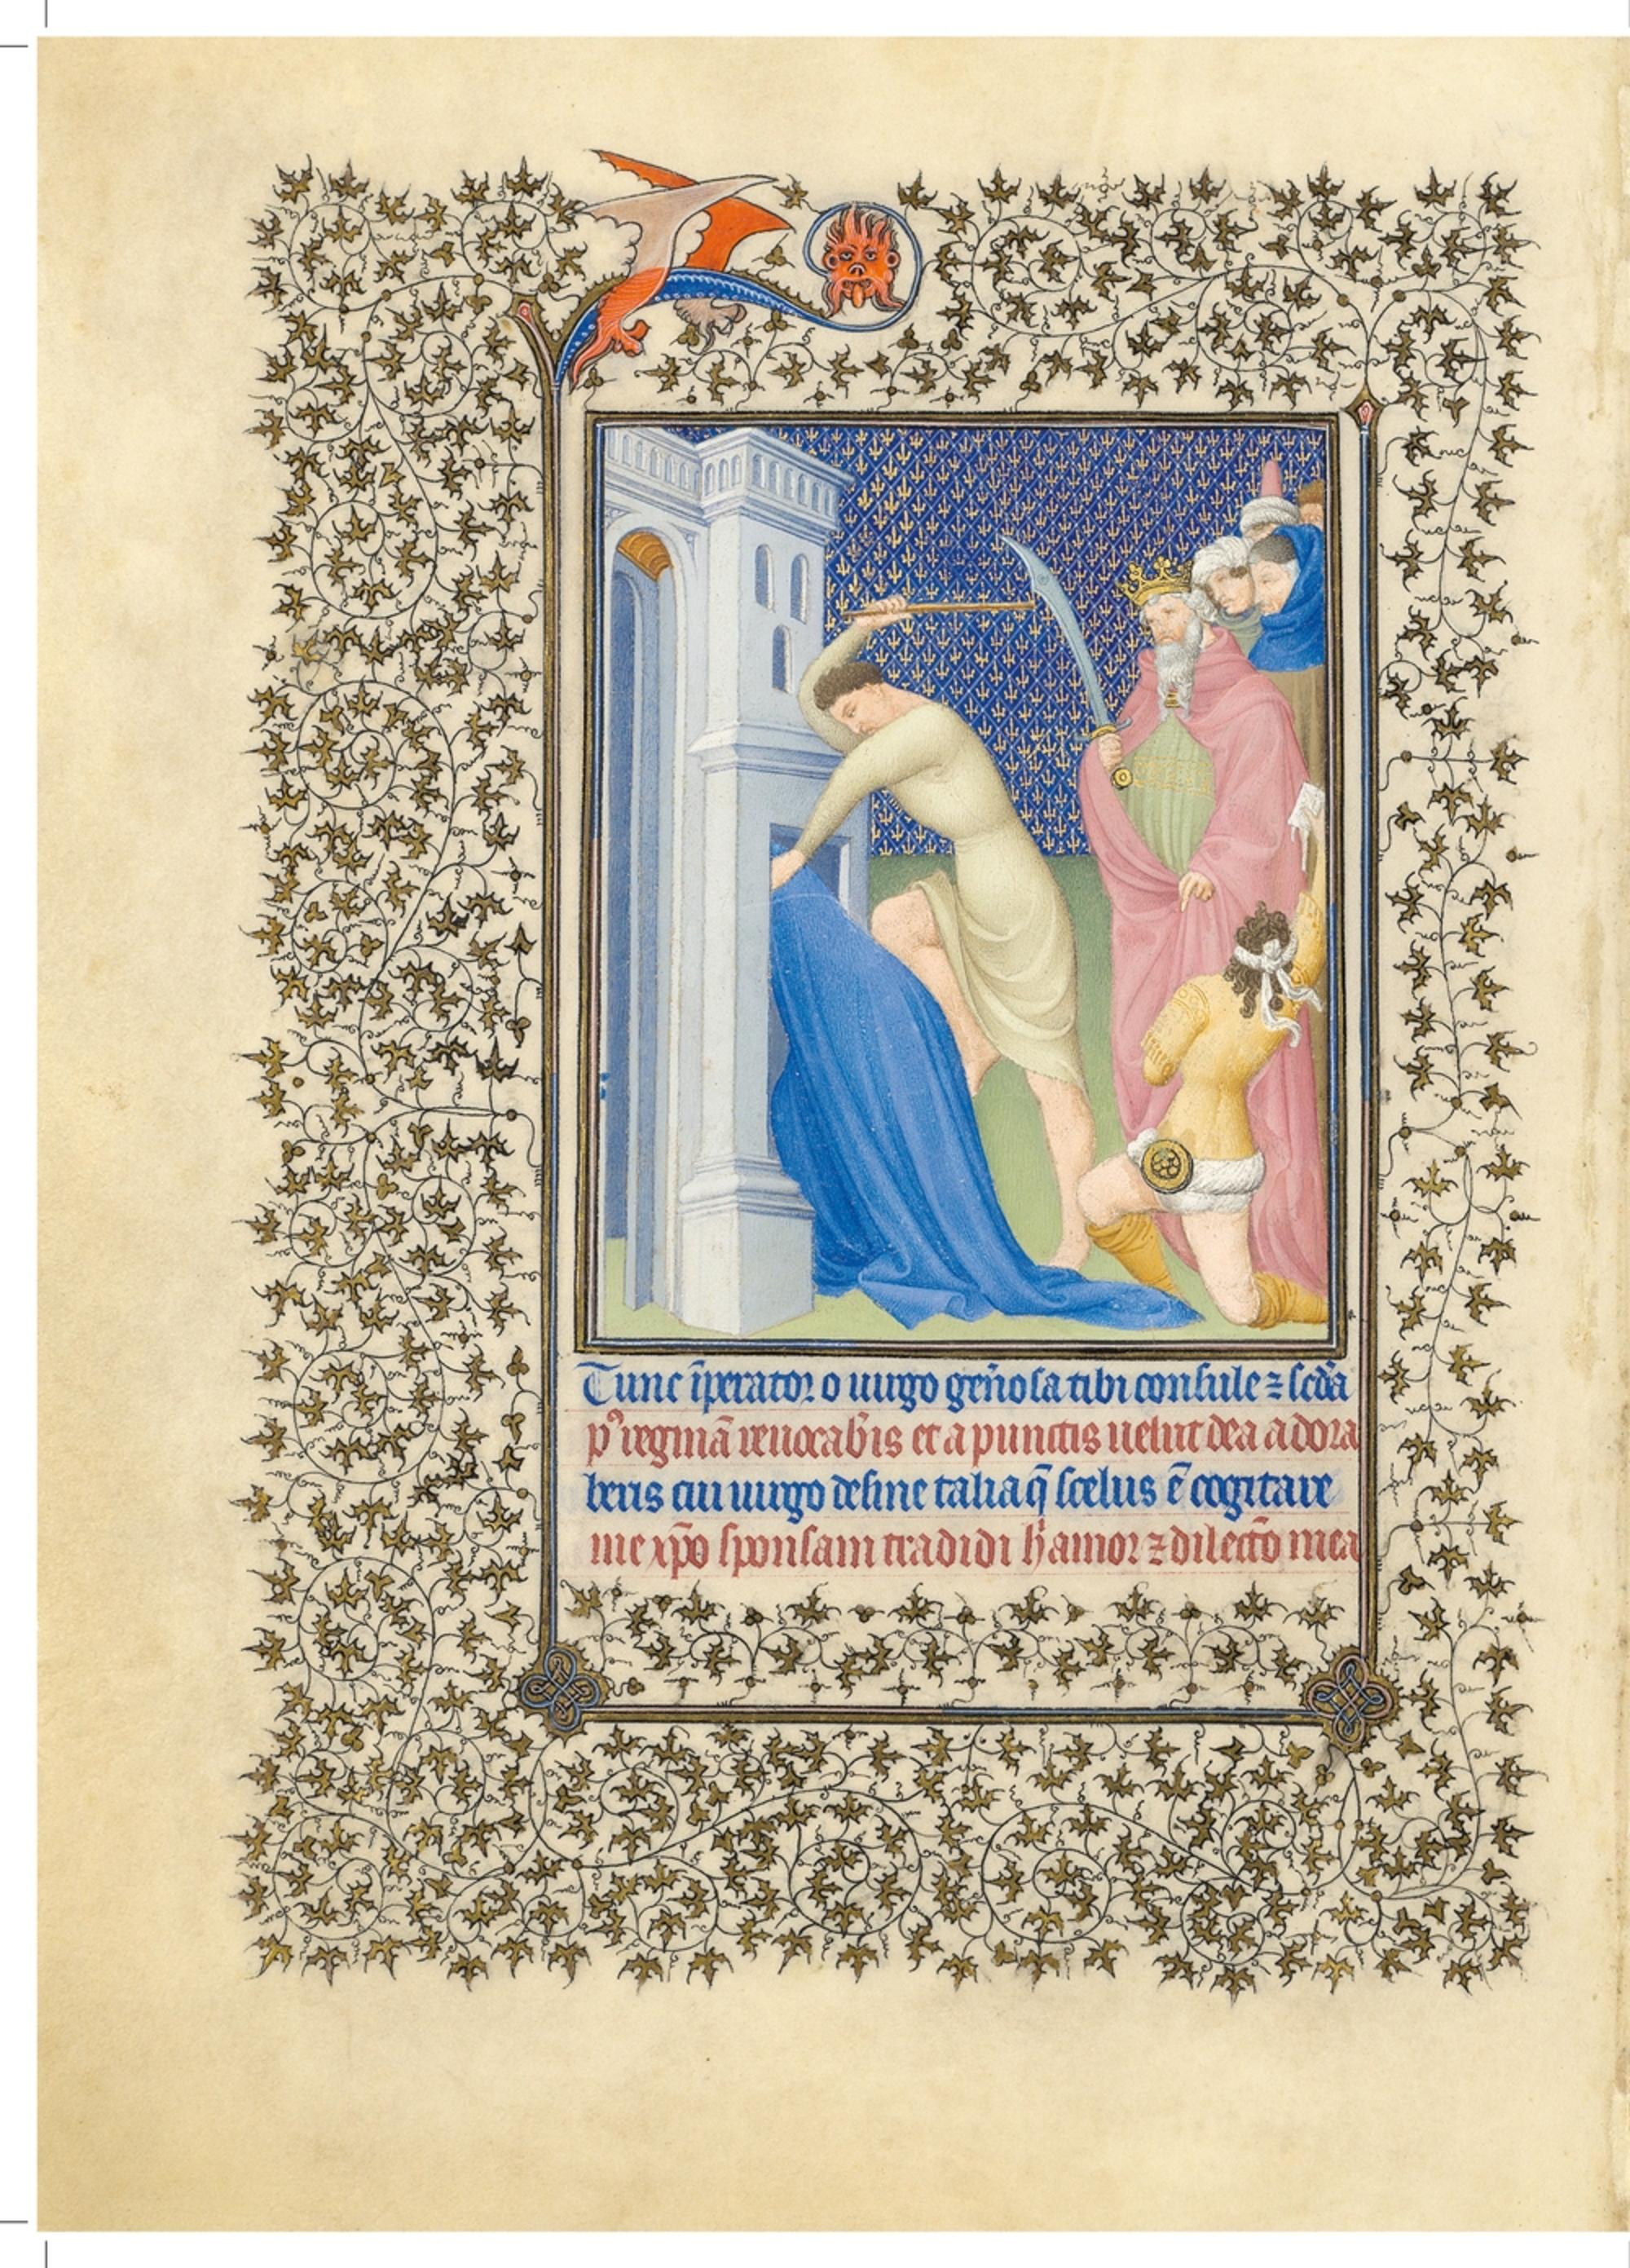 Tunc īperator o uirgo gen̄osa tibi consule ⁊ scd̄a
p' reginā reuocab'is et a punctis uelut dea adora
beris cui uirgo desine talia q̄ scelus ē cogitare
me xp̄o sponsam tradidi h' amor ⁊ dilectō mea